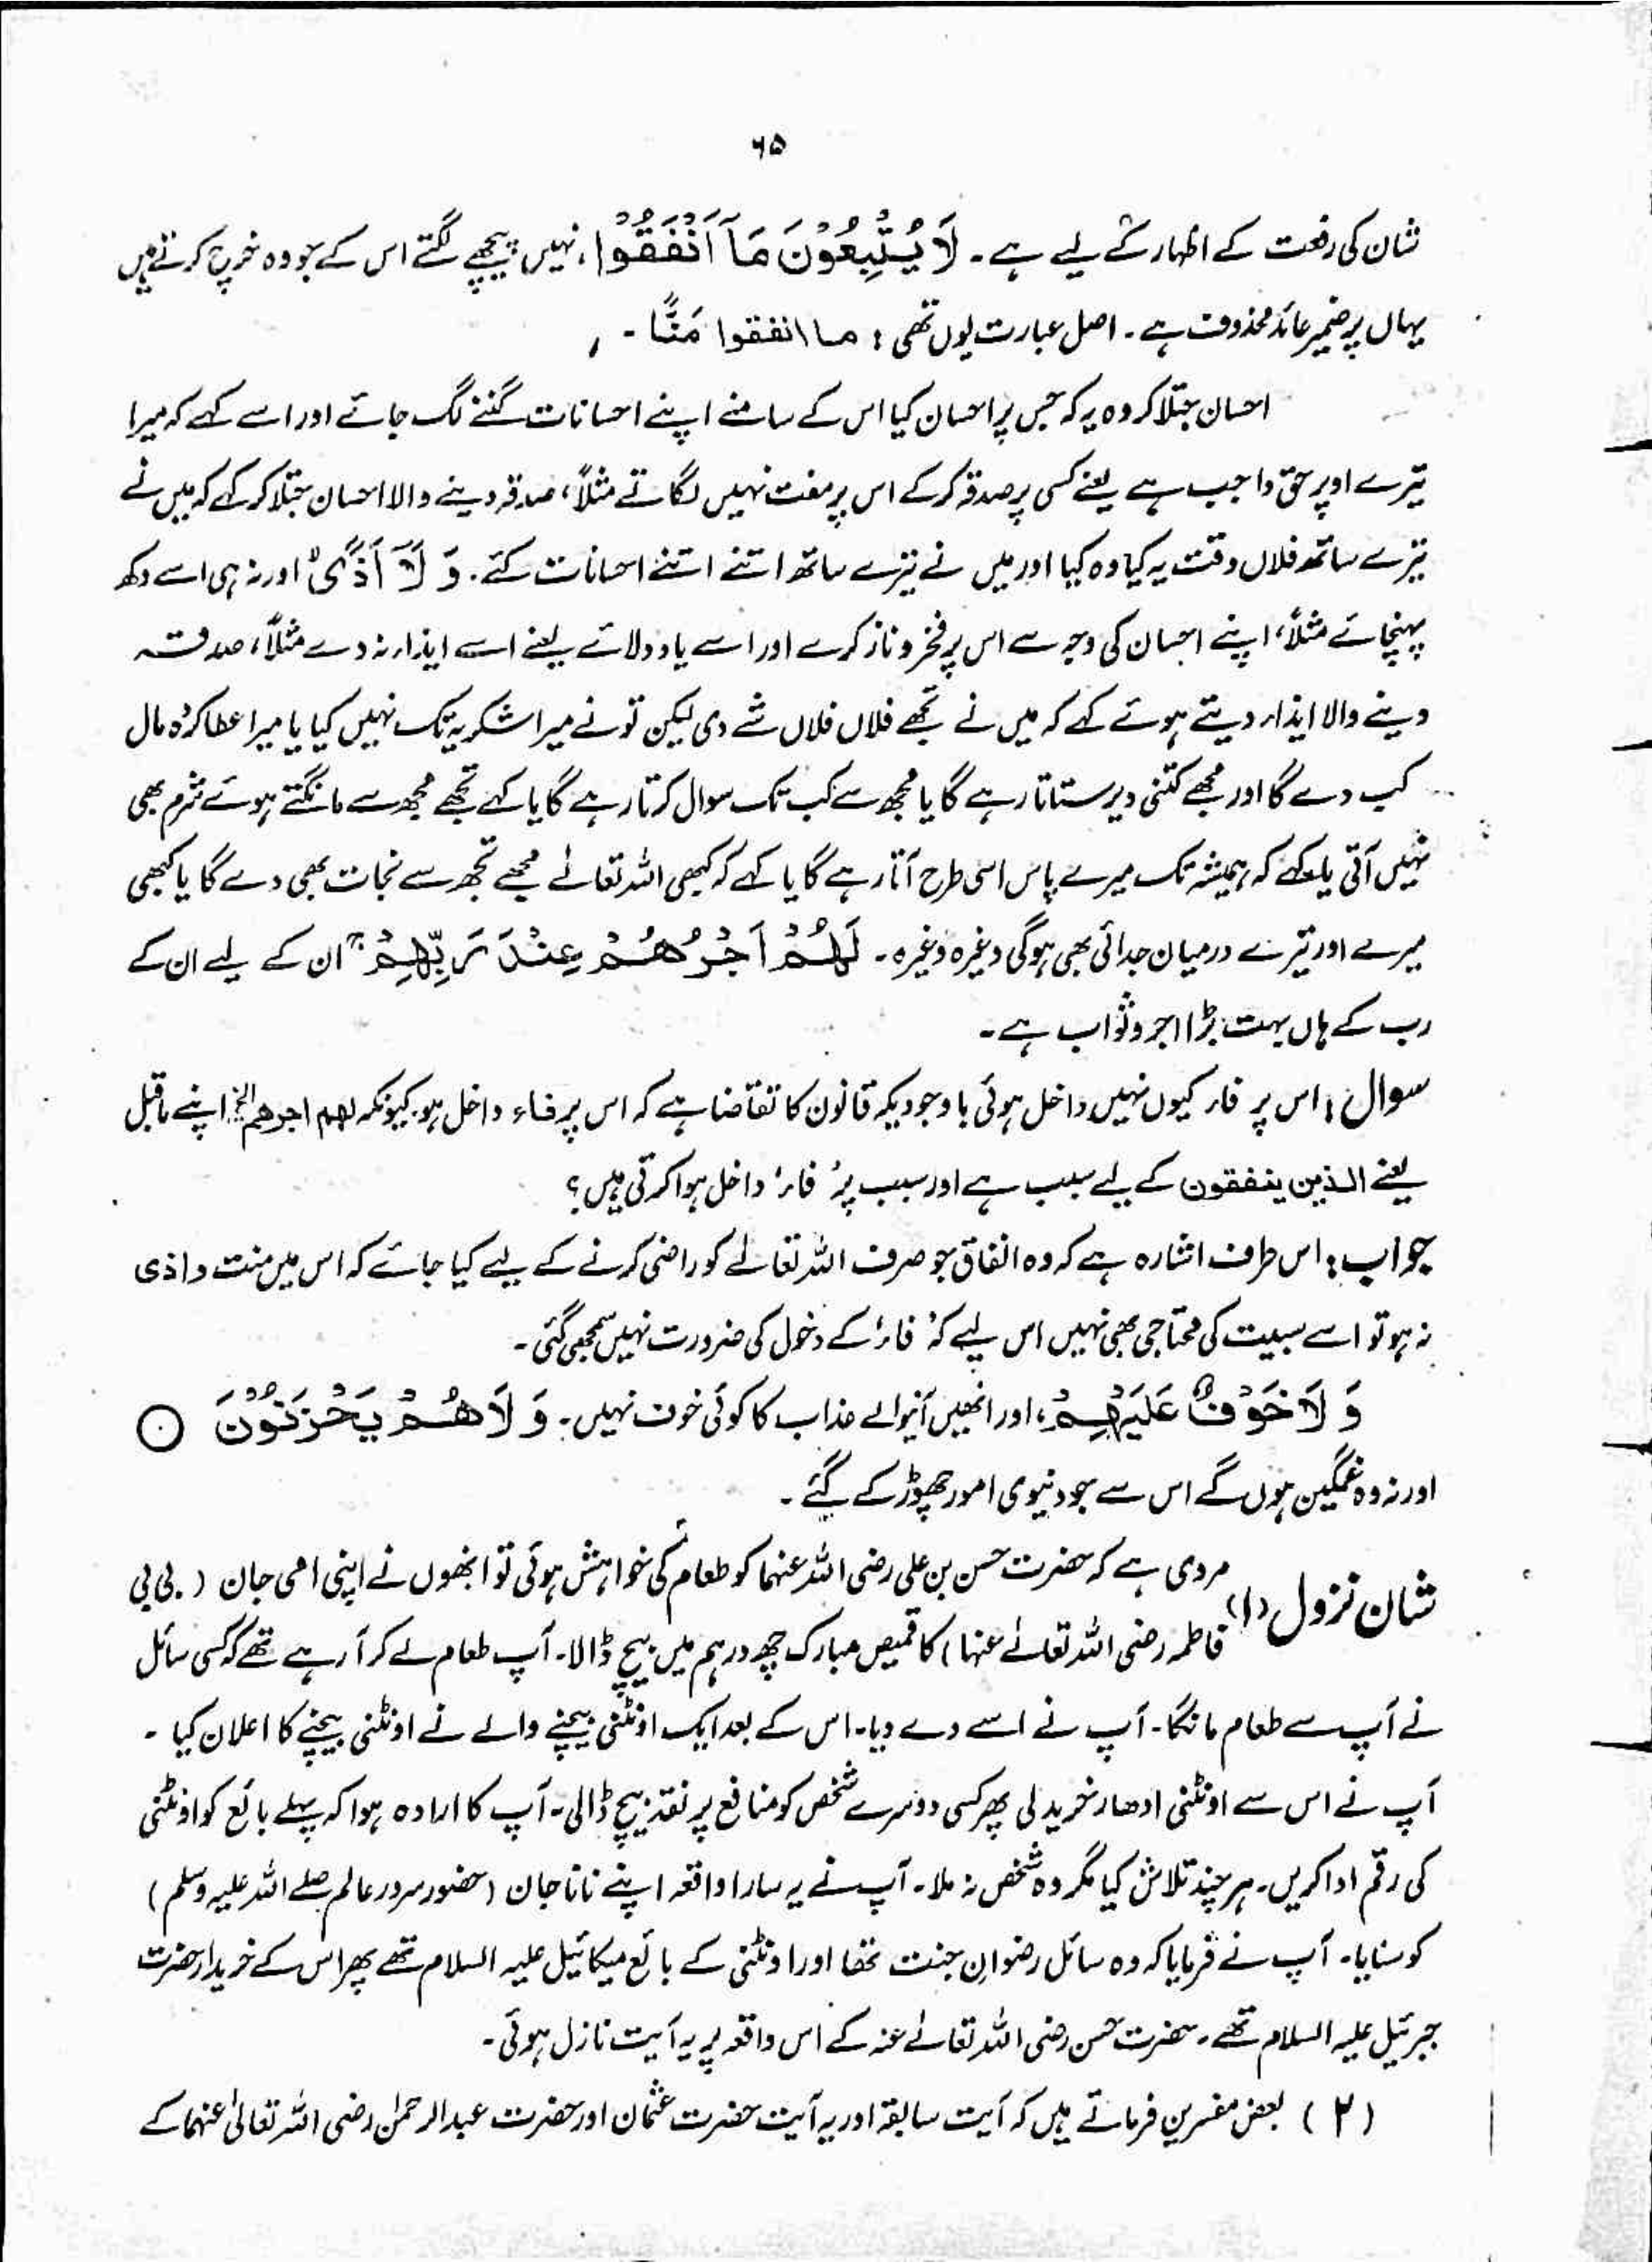 ۶۵
شان کی رفعت کے اظہار کے لیے ہے۔ لَا يُتْبِعُوْنَ مَآ اَنْفَقُوْا، نہیں پیچھے لگتے اس کے جو وہ خرچ کرتے ہیں
یہاں پر ضمیر عائد محذوف ہے۔ اصل عبارت یوں تھی : ما انفقوا مَنًّا۔
احسان جتلا کر وہ یہ کہ جس پر احسان کیا اس کے سامنے اپنے احسانات گننے لگ جائے اور اسے کہے کہ میرا
تیرے اوپر حق واجب ہے یعنے کسی پر صدقہ کرکے اس پر مفت نہیں لگاتے مثلاً، صدقہ دینے والا احسان جتلا کر کہے کہ میں نے
تیرے ساتھ فلاں وقت یہ کیا وہ کیا اور میں نے تیرے ساتھ اتنے اتنے احسانات کئے۔ وَ لَآ اَذًى اور نہ ہی اسے دکھ
پہنچائے مثلاً، اپنے احسان کی وجہ سے اس پر فخر و ناز کرے اور اسے یاد دلائے یعنے اسے ایذار نہ دے مثلاً، صدقہ
دینے والا ایذار دیتے ہوئے کہے کہ میں نے تجھے فلاں فلاں شے دی لیکن تو نے میرا شکریہ تک نہیں کیا یا میرا عطا کردہ مال
کب دے گا اور مجھے کتنی دیر ستاتا رہے گا یا مجھ سے کب تک سوال کرتا رہے گا یا کہے تجھے مجھ سے مانگتے ہوئے شرم بھی
نہیں آتی یا کہے کہ ہمیشہ تک میرے پاس اسی طرح آتا رہے گا یا کہے کہ کبھی اللہ تعالےٰ مجھے تجھ سے نجات بھی دے گا یا کبھی
میرے اور تیرے درمیان جدائی بھی ہوگی وغیرہ وغیرہ۔ لَهُمْ اَجْرُهُمْ عِنْدَ رَبِّهِمْ ان کے لیے ان کے
رب کے ہاں بہت بڑا اجر و ثواب ہے۔
سوال : اس پر فار کیوں نہیں داخل ہوئی باوجودیکہ قانون کا تقاضا ہے کہ اس پر فاء داخل ہو۔ کیونکہ لهم اجرهم الخ اپنے ماقبل
یعنے الذین ینفقون کے لیے سبب ہے اور سبب پر ’فار‘ داخل ہوا کرتی ہیں؟
جواب : اس طرف اشارہ ہے کہ وہ انفاق جو صرف اللہ تعالےٰ کو راضی کرنے کے لیے کیا جائے کہ اس میں منت و اذی
نہ ہو تو اسے سببیت کی محتاجی بھی نہیں اس لیے کہ ’فار‘ کے دخول کی ضرورت نہیں سمجھی گئی۔
وَ لَا خَوْفٌ عَلَيْهِمْ، اور انھیں آنیوالے عذاب کا کوئی خوف نہیں۔ وَ لَا هُمْ يَحْزَنُوْنَ ○
اور نہ وہ غمگین ہوں گے اس سے جو دنیوی امور چھوڑ کے گئے۔
شان نزول (۱) مروی ہے کہ حضرت حسن بن علی رضی اللہ عنہما کو طعام کی خواہش ہوئی تو انھوں نے اپنی امی جان (بی بی
فاطمہ رضی اللہ تعالےٰ عنہا) کا قمیص مبارک چھ درہم میں بیچ ڈالا۔ آپ طعام لے کر آ رہے تھے کہ کسی سائل
نے آپ سے طعام مانگا۔ آپ نے اسے دے دیا۔ اس کے بعد ایک اونٹنی بیچنے والے نے اونٹنی بیچنے کا اعلان کیا۔
آپ نے اس سے اونٹنی ادھار خرید لی پھر کسی دوسرے شخص کو منافع پر نقد بیچ ڈالی۔ آپ کا ارادہ ہوا کہ پہلے بائع کو اونٹنی
کی رقم ادا کریں۔ ہر چند تلاش کیا مگر وہ شخص نہ ملا۔ آپ نے یہ سارا واقعہ اپنے نانا جان (حضور سرور عالم صلے اللہ علیہ وسلم)
کو سنایا۔ آپ نے فرمایا کہ وہ سائل رضوانِ جنت تھا اور اونٹنی کے بائع میکائیل علیہ السلام تھے پھر اس کے خریدار حضرت
جبرئیل علیہ السلام تھے۔ حضرت حسن رضی اللہ تعالےٰ عنہ کے اس واقعہ پر یہ آیت نازل ہوئی۔
(۲) بعض مفسرین فرماتے ہیں کہ آیت سابقہ اور یہ آیت حضرت عثمان اور حضرت عبدالرحمٰن رضی اللہ تعالیٰ عنہما کے